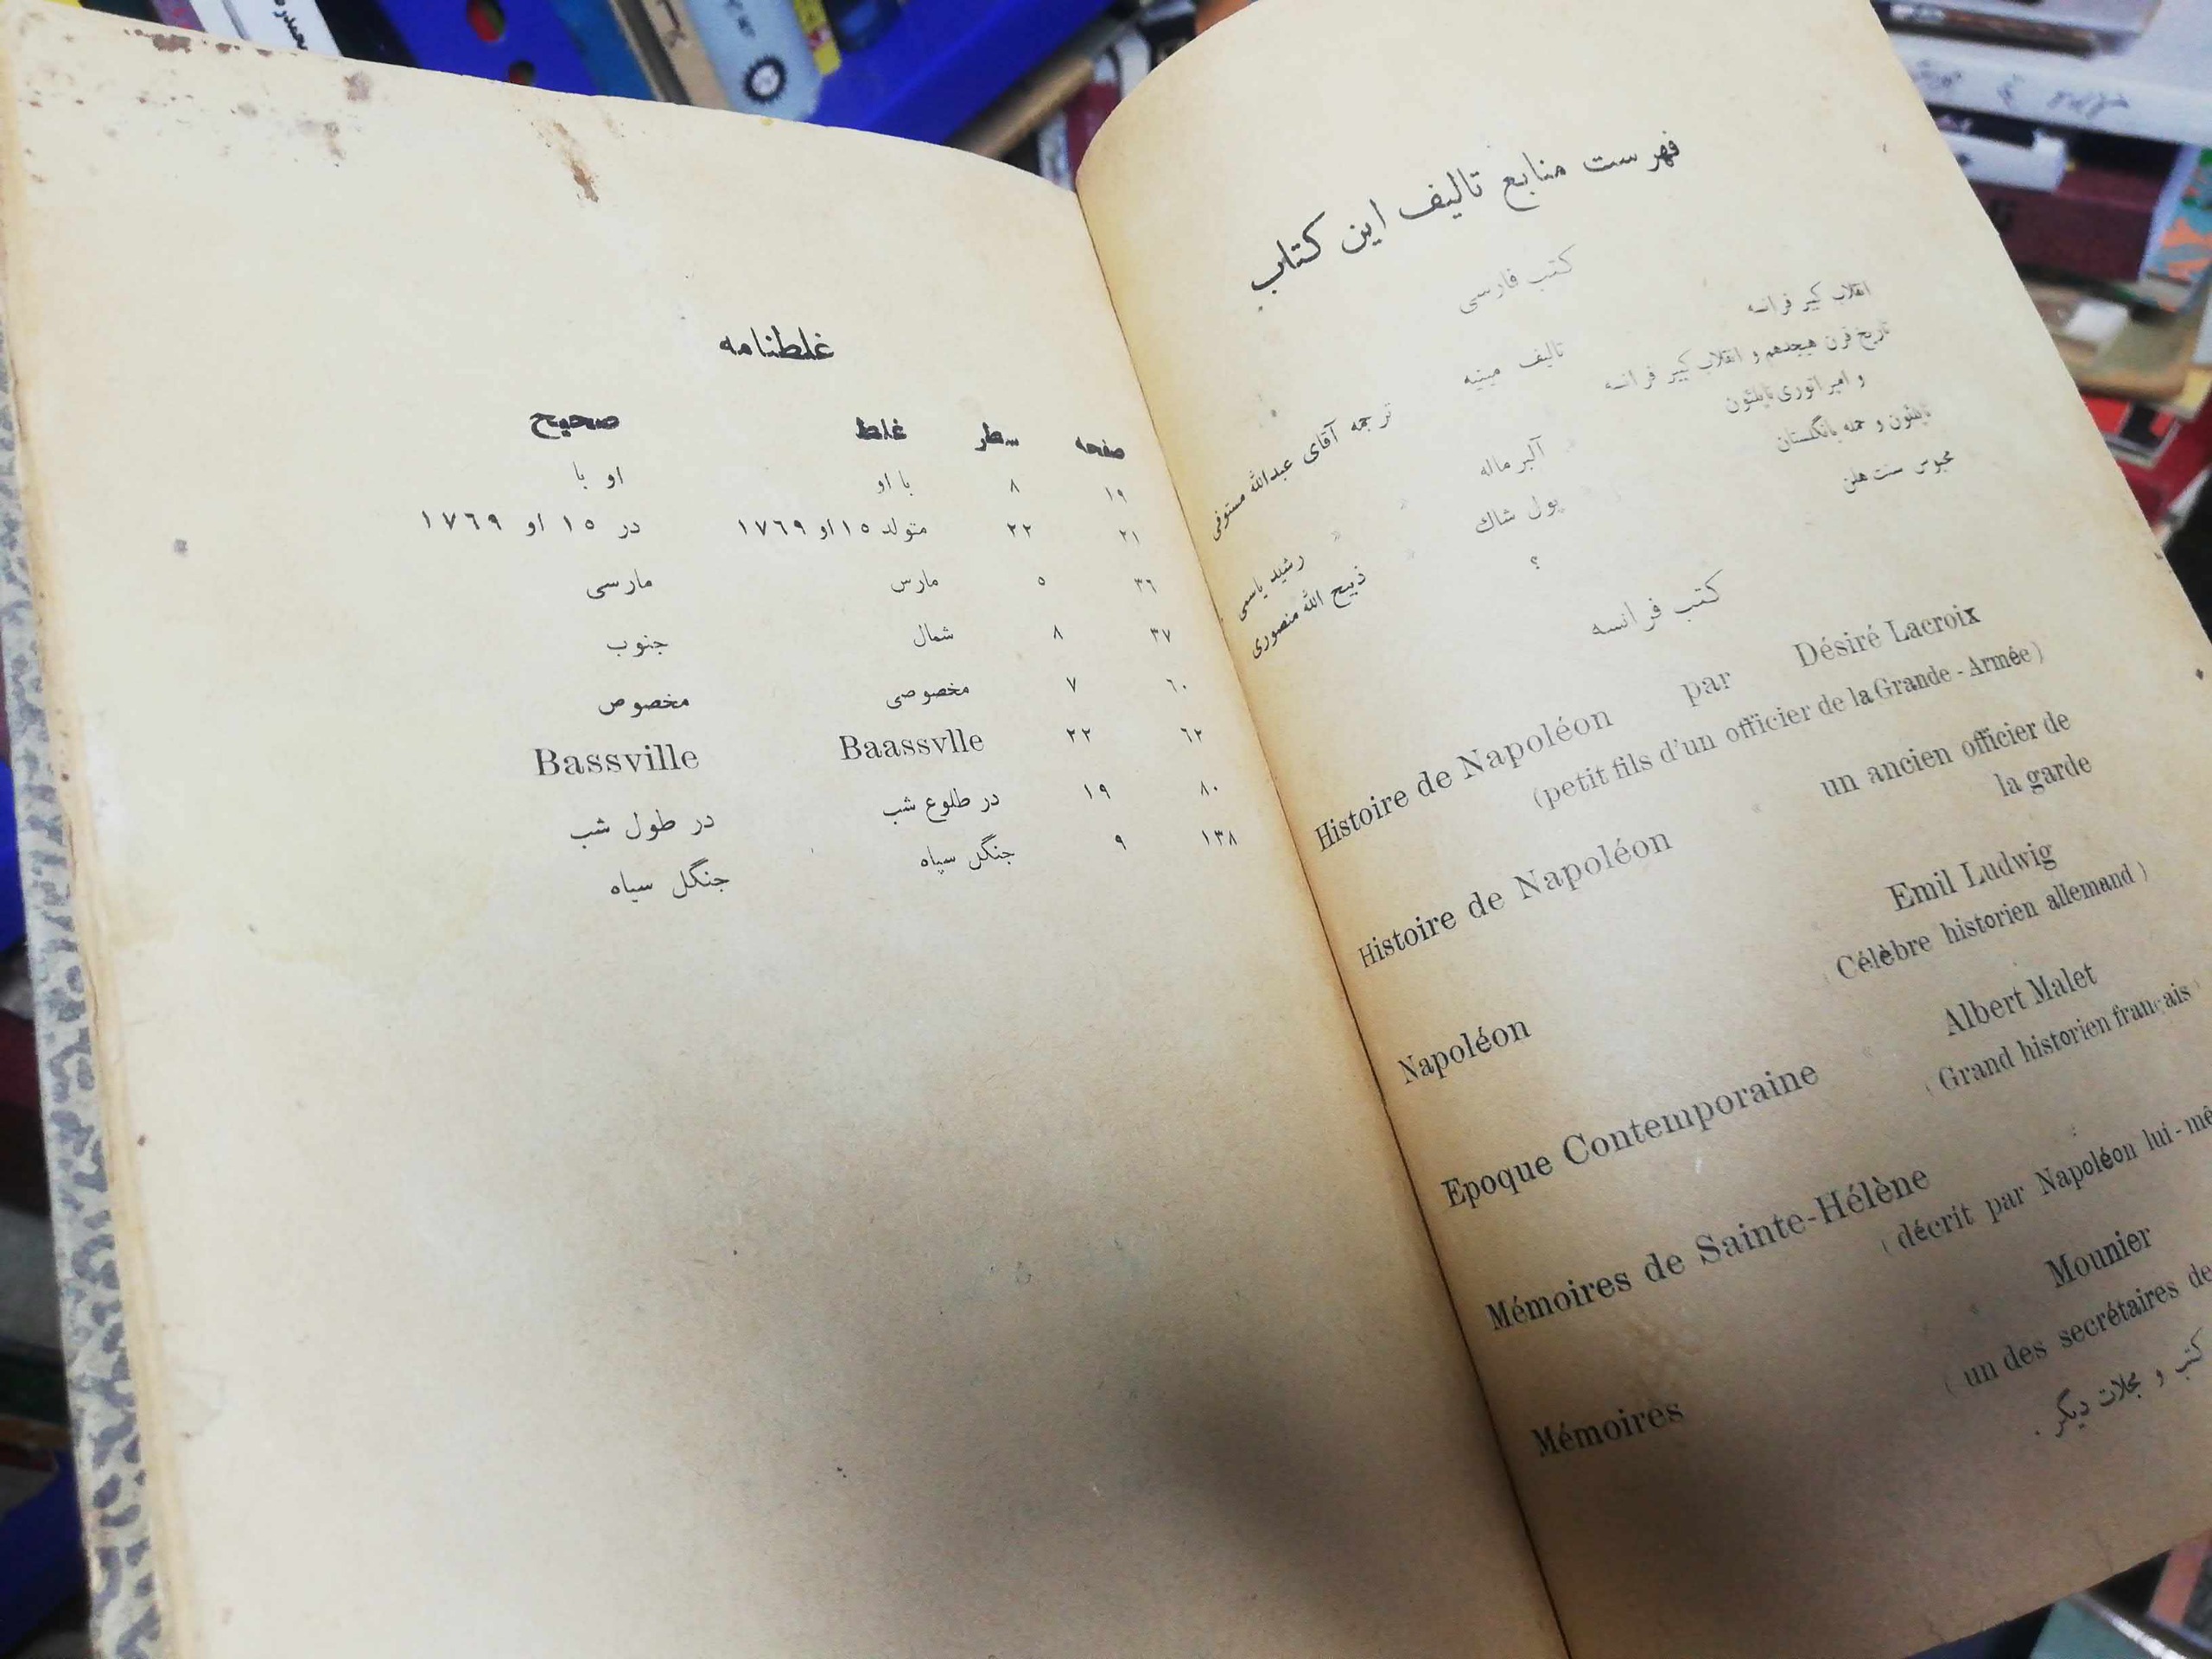 فهرست منابع تالیف این کتاب
کتب فارسی
انقلاب کبیر فرانسه تالیف مینیه ترجمه آقای عبدالله مستوفی
تاریخ قرن هیجدهم و انقلاب کبیر فرانسه
و امپراتوری ناپلئون آلبر ماله » » رشید یاسمی
ناپلئون و حمله بانگلستان پول شاك » ذبیح الله منصوری
محبوس سنت هلن ؟
کتب فرانسه
Histoire de Napoléon par Désiré Lacroix
(petit fils d'un officier de la Grande - Armée)
Histoire de Napoléon « un ancien officier de
la garde
Napoléon « Emil Ludwig
(Célèbre historien allemand)
Epoque Contemporaine « Albert Malet
(Grand historien français)
Mémoires de Sainte-Hélène
(décrit par Napoléon lui-mê
Mémoires « Mounier
(un des secrétaires de
کتب و مجلات دیگر .
غلطنامه
صفحه سطر غلط صحیح
۱۹ ۸ با او او با
۲۱ ۲۲ متولد ۱۵ او ۱۷٦۹ در ۱۵ او ۱۷٦۹
۳٦ ۵ مارس مارسی
۳۷ ۸ شمال جنوب
٦۰ ۷ مخصوصی مخصوص
٦۲ ۲۲ Baassvlle Bassville
۸۰ ۱۹ در طلوع شب در طول شب
۱۳۸ ۹ جنگل سپاه جنگل سیاه